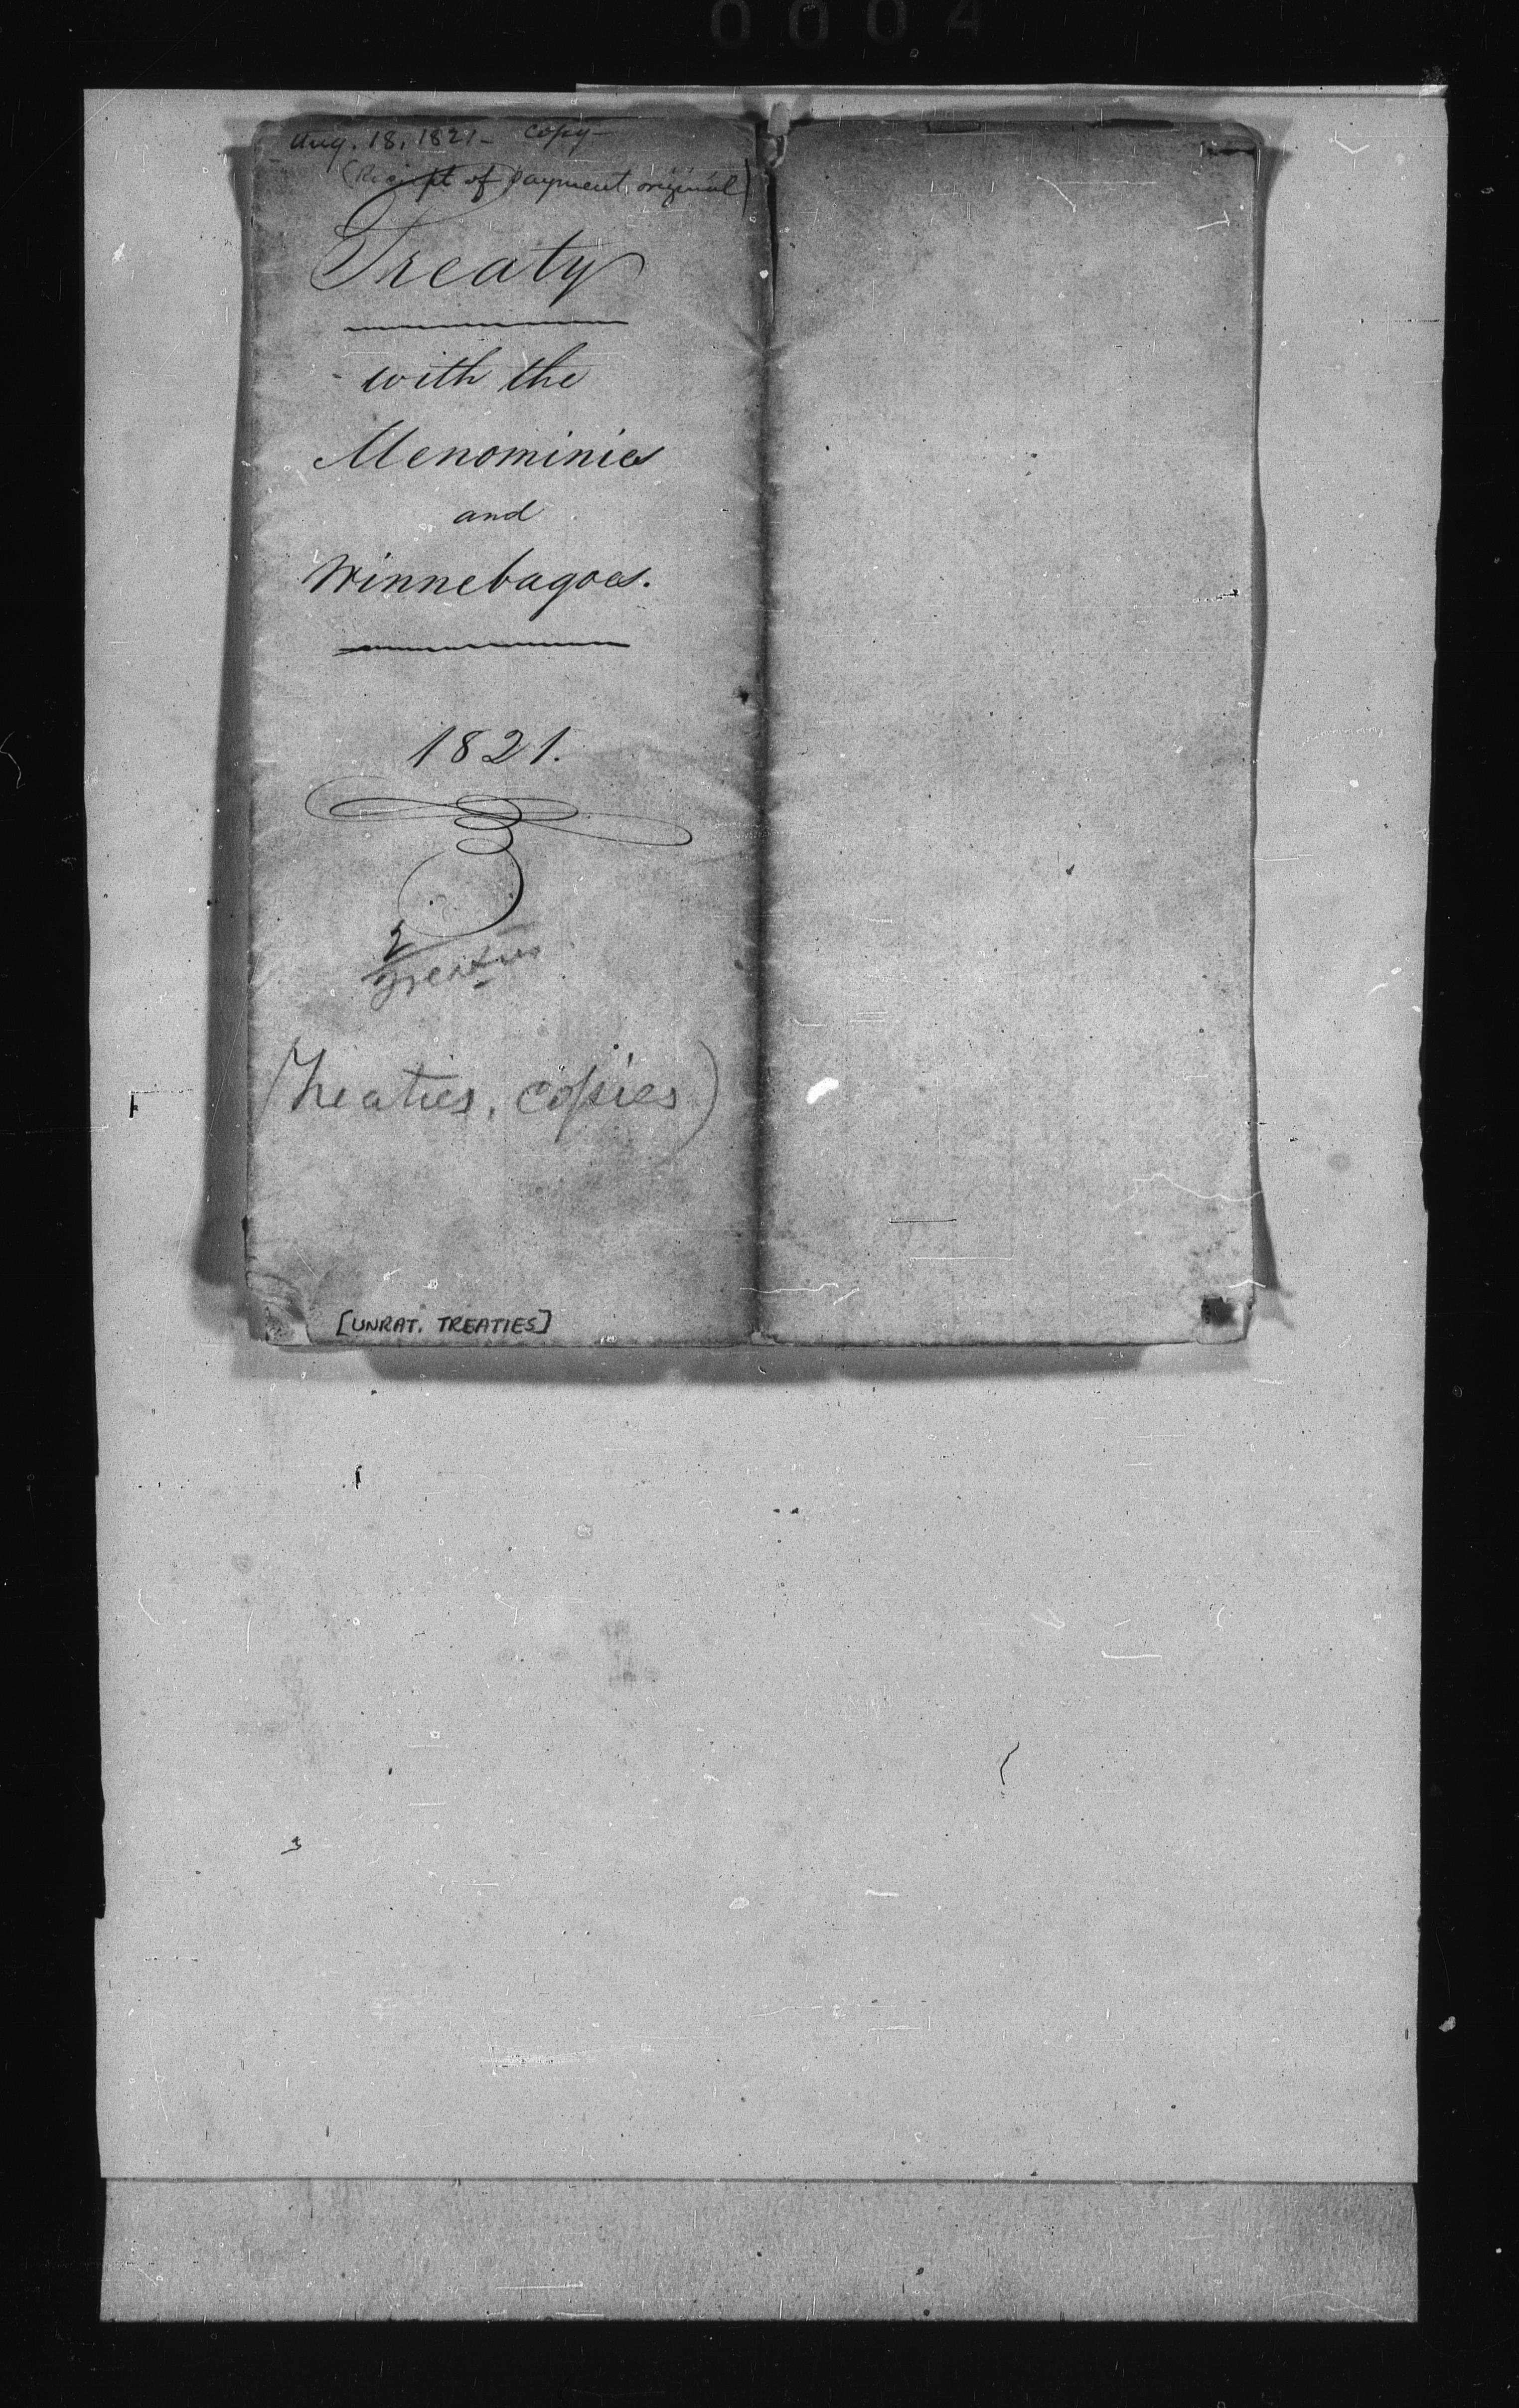 0004
Aug. 18, 1821 - copy -
(Receipt of payment, original)
Treaty
with the
Menominies
and
Winnebagoes.
1821.
2
Treaties
(Treaties, copies)
[UNRAT. TREATIES]